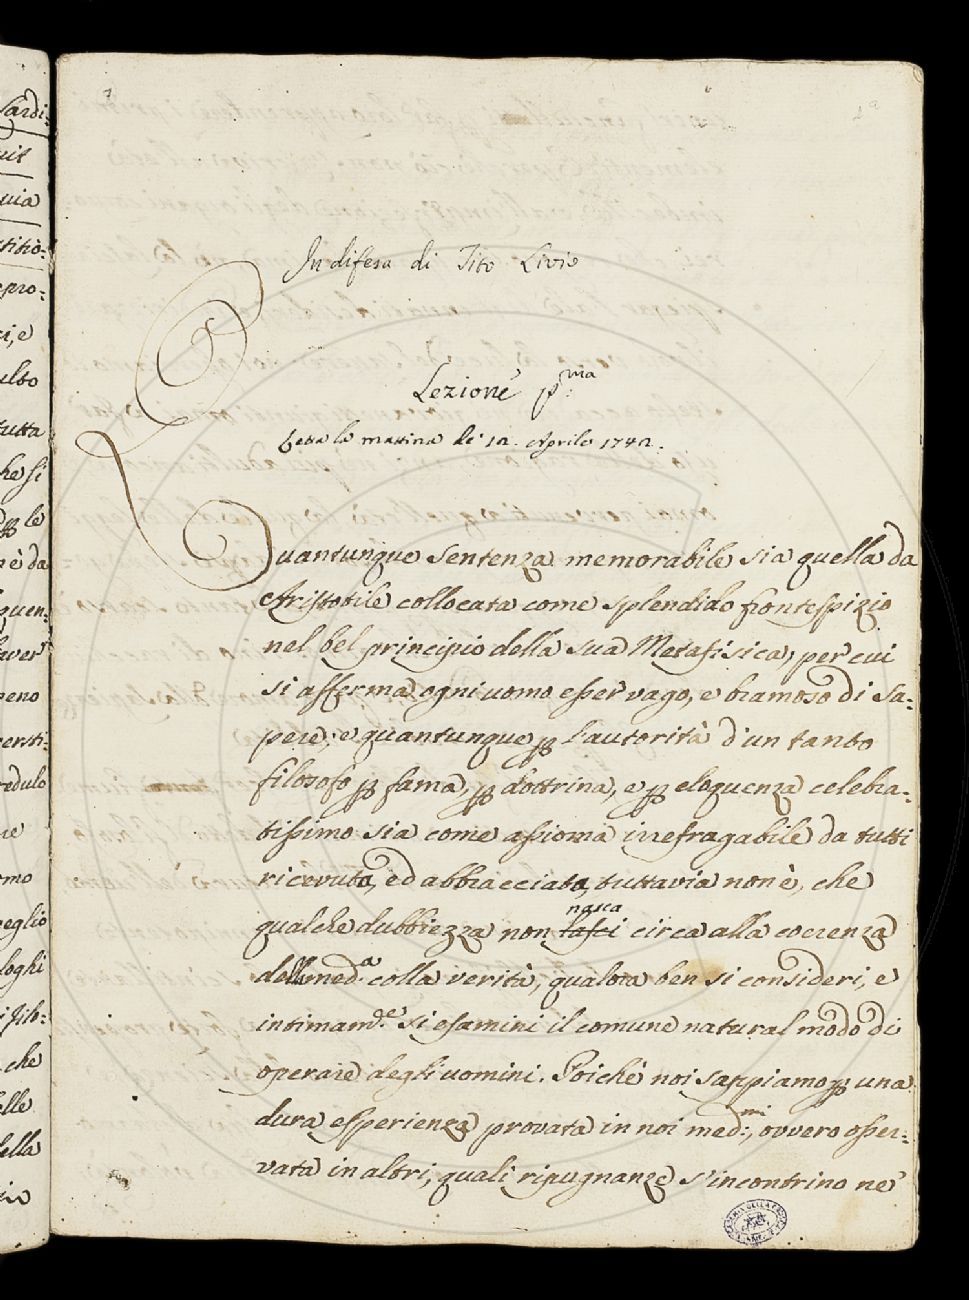 In difesa di Tito Livio
Lezione p.ma
Letta la mattina de' 12. Aprile 1742.
Quantunque sentenza memorabile sia quella da
Aristotile collocata come splendido frontespizio
nel bel principio della sua Metafisica, per cui
si afferma ogni uomo esser vago, e bramoso di sa=
pere; e quantunque p l'autorità d'un tanto
filosofo p fama, p dottrina, e p eloquenza celebra=
tissimo sia come assioma irrefragabile da tutti
ricevuta, ed abbracciata, tuttavia non è, che
nasca
qualche dubbiezza non lasci circa alla coerenza
della med.a colla verità, qualora ben si consideri, e
intimam.de si esamini il comune natural modo di
operare degli uomini. Poiché noi sappiamo p una
dura esperienza provata in noi med.mi, ovvero osser=
vata in altri, quali ripugnanze s'incontrino ne'
Sardi=
uit
uia
titio=
pro=
ci, e
ulto
tutta
he si
p le
n è da
quen=
aver
eno
ersti=
redulo
re
omo
eglio
loghi
che
elle
ella